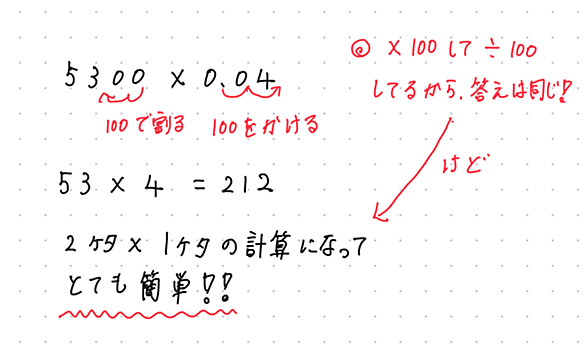 5300 × 0.04
100で割る 100をかける
◎ ×100して÷100
してるから、答えは同じ!
けど
53 × 4 = 212
2ケタ × 1ケタの計算になって
とても簡単!!